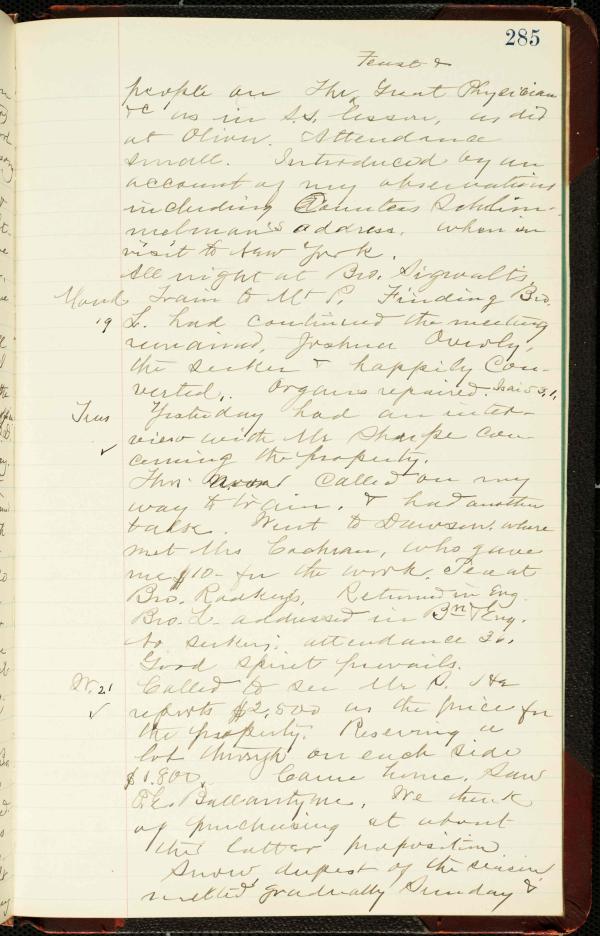 285
Feast &
people on The Great Physician
&c as in S.S. lesson, as did
at Oliver. Attendance
small. Introduced by an
account of my observations
including Countess Schim-
melman's address. when on
visit to New York.
All night at Bro. Sigwalts
Mond Train to Mt P. Finding Bro.
19 L. had continued the meeting
Joshua Overly,
the seeker & happily con-
verted. Organs repaired. Isai 53,1,
Tues Yesterday had an inter-
view with Mr Sharpe con-
cerning the property.
This called on my
way to train, & had another
talk. Went to Dawson, where
met Mrs Cochran, who gave
me $10- for the work. Tea at
Bro. Returned in Eng.
Bro. L. addressed in & Eng.
attendance 30.
Good spirit prevails.
W. 21 Called to see Mr S. He
reports $2,500 as the price for
the property. Reserving a
lot through on each side
$1,800. Came home. Saw
Ballantyne. We think
of purchasing at about
the latter proposition
Snow, deepest of the season,
melted gradually Sunday &